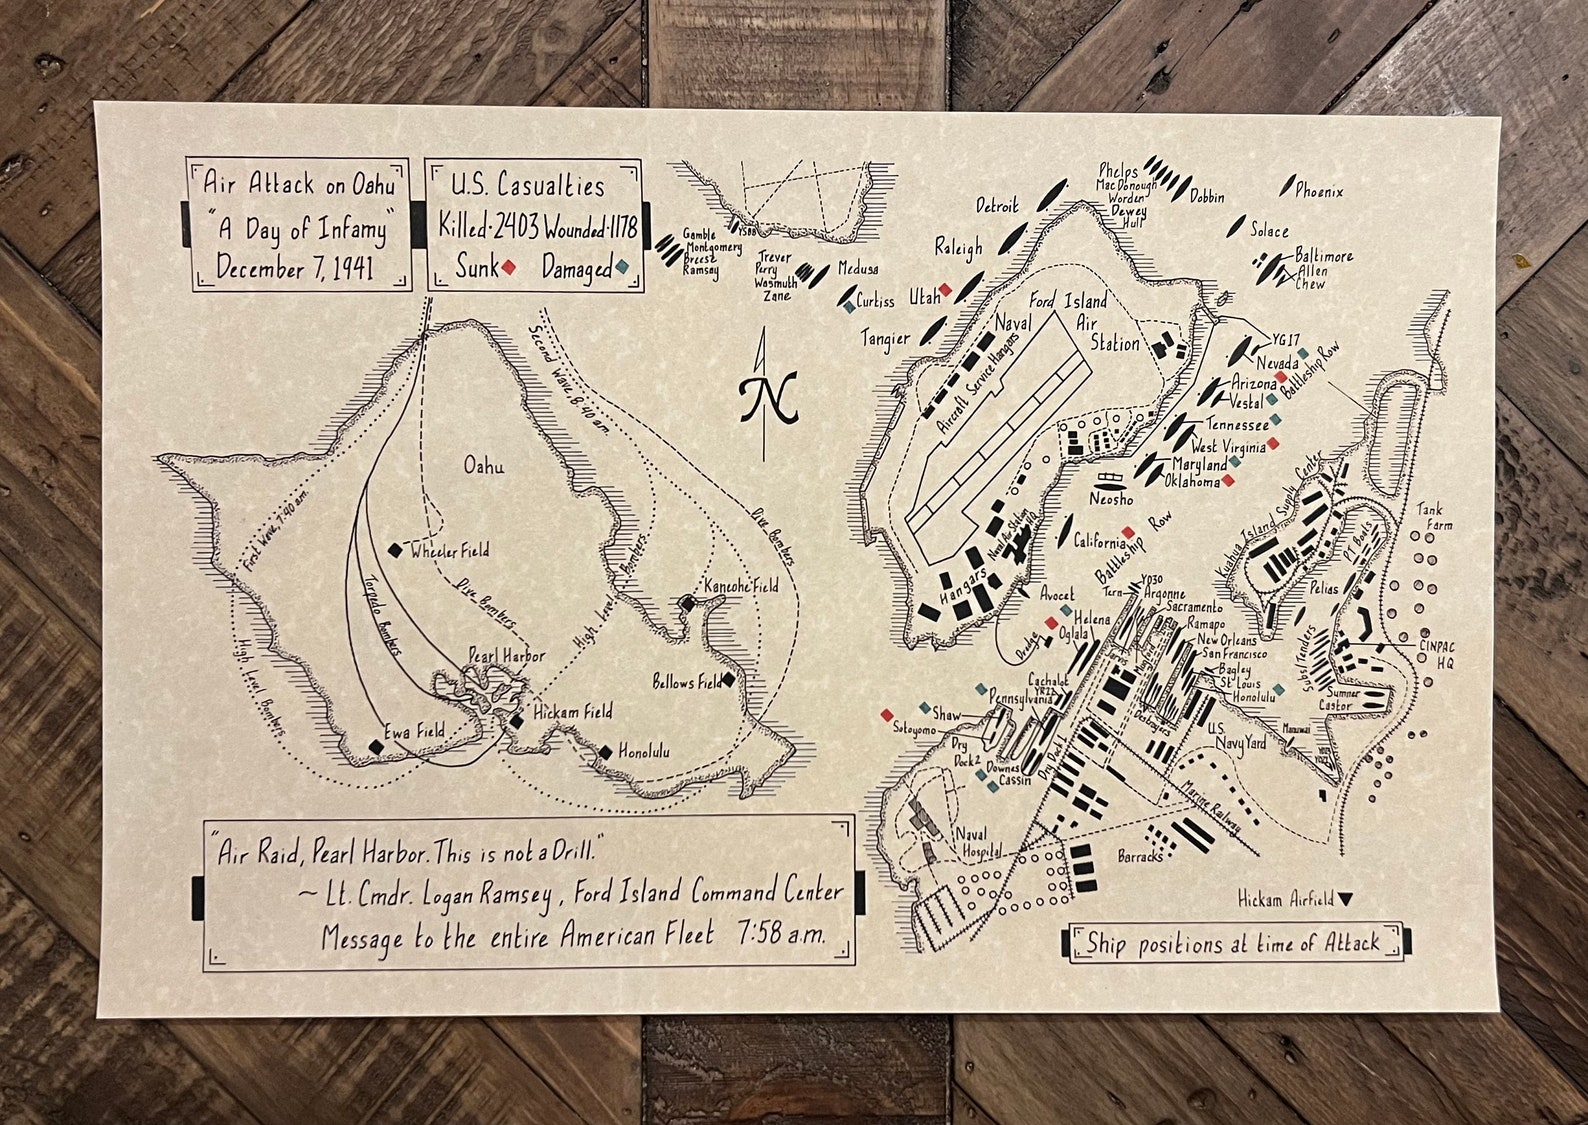 Air Attack on Oahu
"A Day of Infamy"
December 7, 1941
U.S. Casualties
Killed·2403 Wounded·1178
Sunk Damaged
Second Wave, 8:40 am.
First Wave, 7:40 am.
Oahu
Wheeler Field
Torpedo Bombers
Dive Bombers
High Level Bombers
Dive Bombers
High Level Bombers
Kaneohe Field
Bellows Field
Pearl Harbor
Hickam Field
Ewa Field
Honolulu
"Air Raid, Pearl Harbor. This is not a Drill."
~ Lt. Cmdr. Logan Ramsey, Ford Island Command Center
Message to the entire American Fleet 7:58 a.m.
N
Gamble
Montgomery
Breest
Ramsay
Trever
Perry
Wasmuth
Zane
Medusa
Curtiss
Detroit
Raleigh
Utah
Tangier
Phelps
MacDonough
Worden
Dewey
Hull
Dobbin
Phoenix
Solace
Baltimore
Allen
Chew
Ford Island
Naval Air
Station
Aircraft Service Hangars
YG17
Nevada
Battleship Row
Arizona
Vestal
Tennessee
West Virginia
Maryland
Oklahoma
Neosho
California
Battleship Row
Naval Air Station
HQ
Hangars
Kuahua Island Supply Center
Tank
Farm
PT Boats
Pelias
Subs/Tenders
CINPAC
HQ
Sumner
Castor
Avocet
Tern
YO30
Argonne
Sacramento
Ramapo
Helena
Oglala
Dredge
Jarvis
Mugford
New Orleans
San Francisco
Bagley
St Louis
Honolulu
Cachalot
YR22
Pennsylvania
Shaw
Sotoyomo
Dry
Dock 2
Downes
Cassin
Dry Dock 1
Destroyers
U.S.
Navy Yard
Manuwai
Marine Railway
Naval
Hospital
Barracks
Hickam Airfield
Ship positions at time of Attack